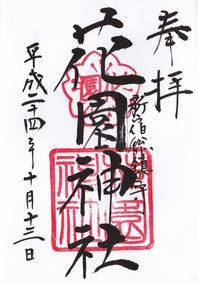 奉拝
新宿総鎮守
花園神社
平成二十四年十月十三日